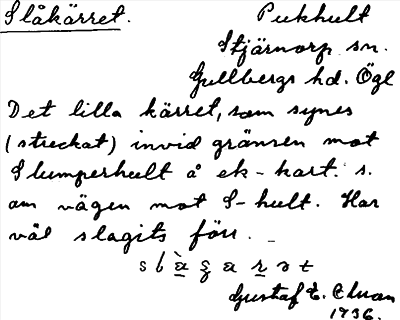 Slåkärret. Pukhult
Stjärnorp sn.
Gullbergs hd. Ögl
Det lilla kärret, som synes
(streckat) invid gränsen mot
Slumperhult å ek-kart. s.
om vägen mot S-hult. Har
väl slagits förr.
Gustaf E.
1936.